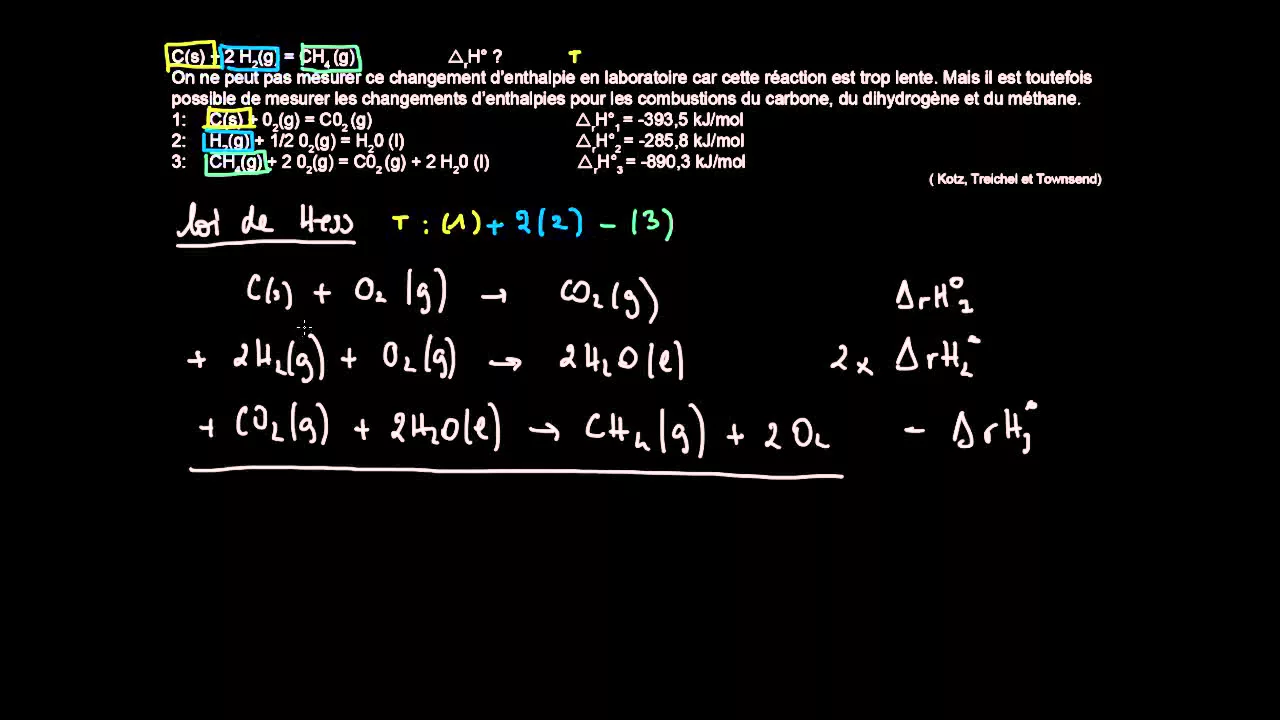 C(s) + 2 H₂(g = CH₄ (g) △ᵣH° ? T
On ne peut pas mesurer ce changement d'enthalpie en laboratoire car cette réaction est trop lente. Mais il est toutefois
possible de mesurer les changements d'enthalpies pour les combustions du carbone, du dihydrogène et du méthane.
1: C(s) + 0₂(g) = C0₂ (g) △ᵣH°₁ = -393,5 kJ/mol
2: H₂(g) + 1/2 0₂(g) = H₂0 (l) △ᵣH°₂ = -285,8 kJ/mol
3: CH₄(g) + 2 0₂(g) = C0₂ (g) + 2 H₂0 (l) △ᵣH°₃ = -890,3 kJ/mol
( Kotz, Treichel et Townsend)
Loi de Hess T : (1) + 2(2) - (3)
C(s) + O₂ (g) → CO₂(g) ΔrH°₁
+ 2H₂(g) + O₂(g) → 2H₂O(l) 2 × ΔrH°₂
+ CO₂(g) + 2H₂O(l) → CH₄(g) + 2 O₂ - ΔrH°₃